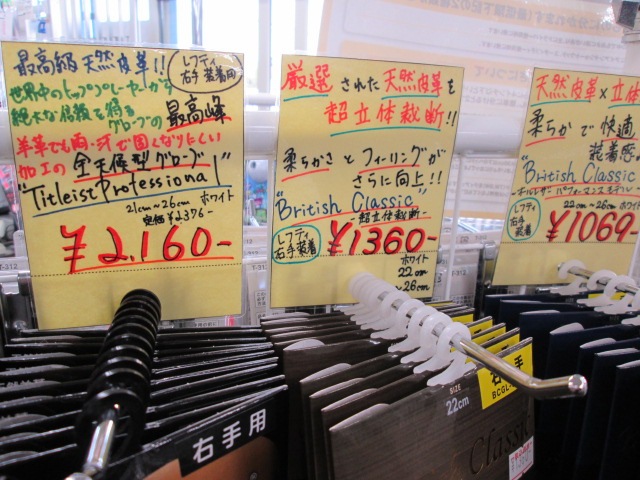 最高級 天然皮革!!
レフティ
右手装着用
世界中のトッププレーヤーから
絶大な信頼を得る
グローブの 最高峰
羊革でも雨・汗で固くなりにくい
加工の 全天候型グローブ
"Titleist Professional"
21cm~26cm ホワイト
定価¥2,376-
¥2,160-
厳選 された 天然皮革を
超立体裁断!!
柔らかさ と フィーリングが
さらに向上!!
"British Classic"
-超立体裁断-
レフティ
右手装着
¥1360-
ホワイト
22cm
~26cm
天然皮革×立体
柔らかで快適
装着感
"British Classic"
22cm~26cm ホワイト
レフティ
右手装着
¥1069-
右手用
SIZE
22cm
右手
Classic